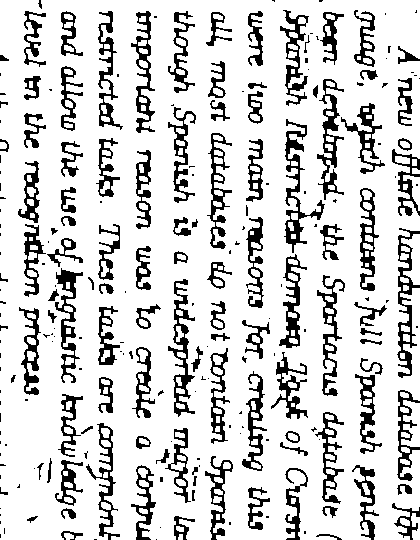 A new offline handwritten database for
guage, which contains full Spanish senten
been developed: the Spartacus database (
Spanish Restricted-domain Task of Cursi
were two main reasons for creating this
all, most databases do not contain Spanis
though Spanish is a widespread major la
important reason was to create a corpu
restricted tasks. These tasks are commonl
and allow the use of linguistic knowledge b
level in the recognition process.